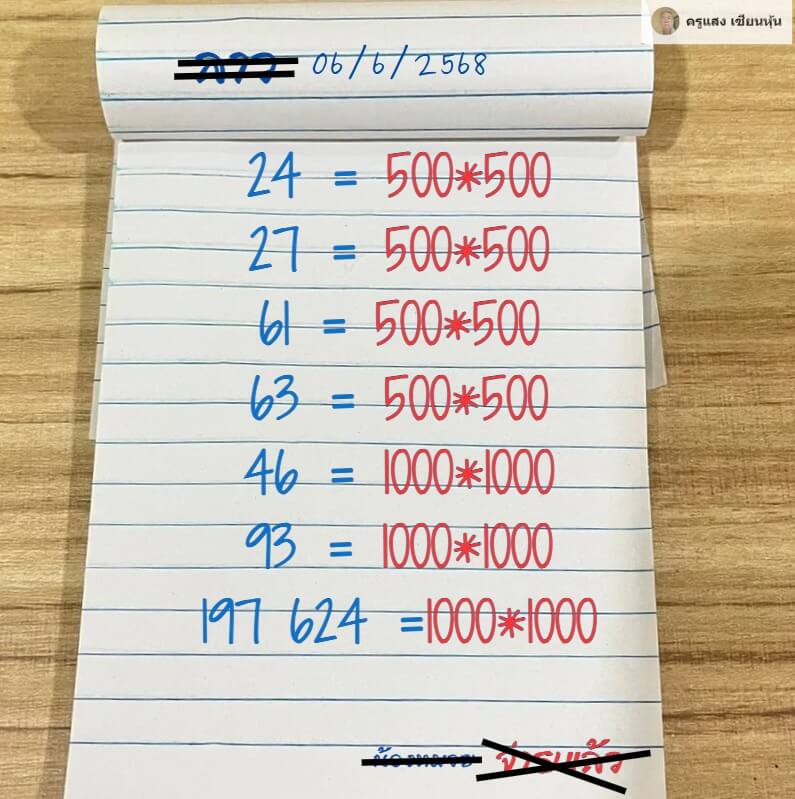 ครูแสง เซียนหุ้น
06/6/2568
24 = 500*500
27 = 500*500
61 = 500*500
63 = 500*500
46 = 1000*1000
93 = 1000*1000
197 624 =1000*1000